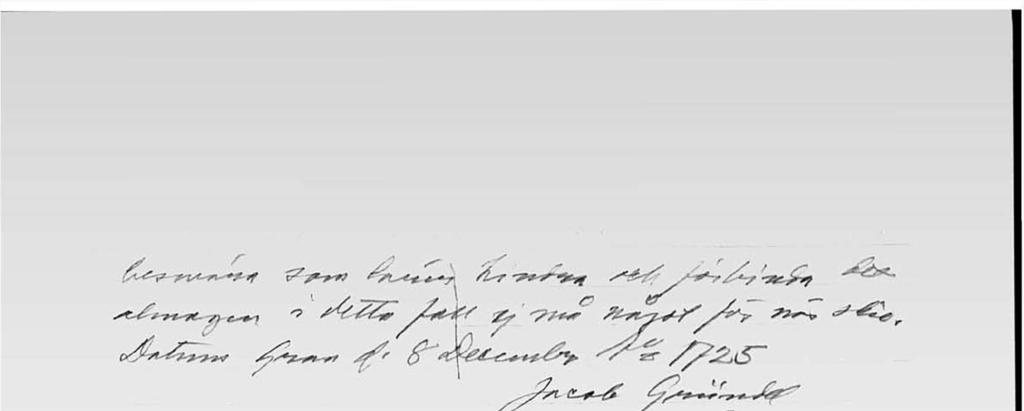 besvära som hindra och förbinda det
almogen i detta fall ej må något för när skie.
Datum Gran d. 8 December Ao 1725
Jacob Gründel